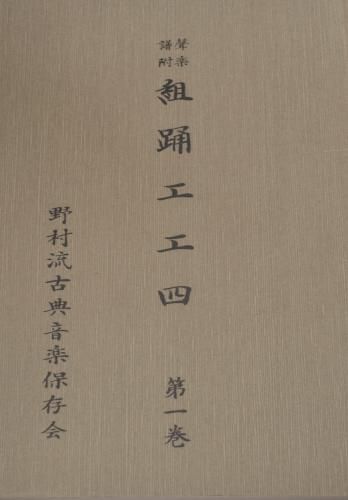 聲楽
譜附
組踊工工四 第一巻
野村流古典音楽保存会